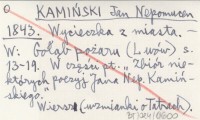 KAMIŃSKI Jan Nepomucen
1843. Wycieczka z miasta. —
W: Gołąb pożaru (Lwów) s.
13-19. W części pt. "Zbiór nie-
których poezyj Jana Nep. Kamiń-
skiego."
Wiersz (wzmianki o Tatrach).